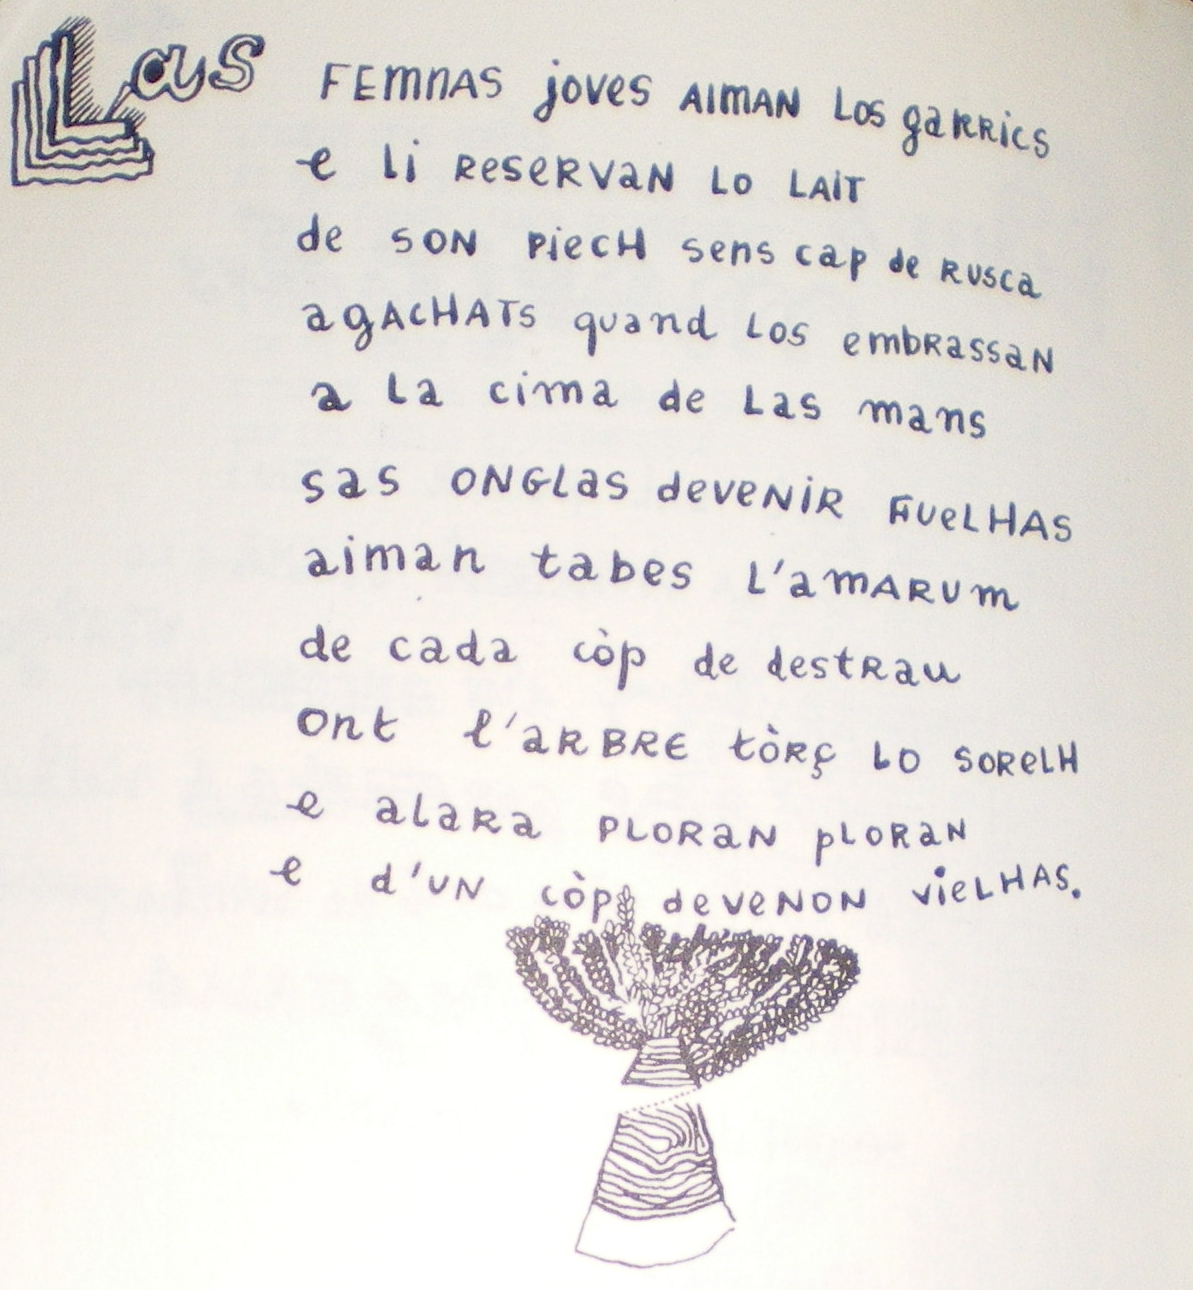 Las FEMNAS joves AIMAN Los gaRRics
e li ReseRVaN Lo LAiT
de SON PiecH sens cap de Rusca
agAcHATS quand Los embRassaN
a La cima de Las mans
sas ONGLas deVeNiR FueLHAS
aiman tabes L'amARum
de cada còp de destRau
ont l'aRBRE tòRç Lo SoReLH
e aLaRa PLoRaN pLoRaN
e d'UN còp deVeNON VieLHAS.